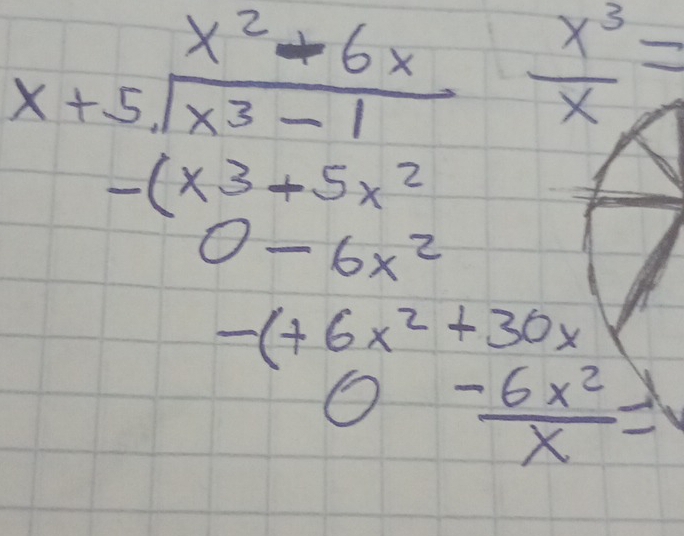 x² - 6x
x + 5 √x3 - 1
-(x3 + 5x²
0 - 6x²
-(+6x² + 30x
0
x³/x =
-6x²/x =